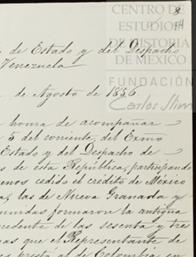 CENTRO DE
ESTUDIOS
DE HISTORIA
DE MÉXICO
FUNDACIÓN
Carlos Slim
de Estado y del Despacho
Venezuela
de Agosto de 1856
honra de acompañar
5 del corriente, del Exmo
Estado y del Despacho de
de esta República, participando
cedido el crédito de México
las de Nueva Granada y
formaron la antigua
de las sesenta y tres
que el Representante de
de Colombia en